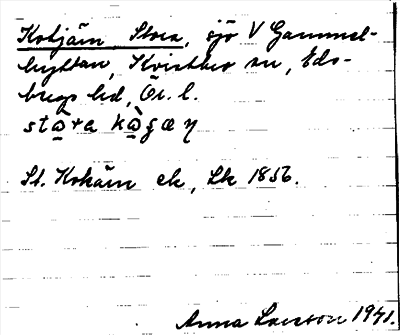 Kotjärn Stora, sjö V Gammel-
hyttan, Kvistbro sn, Eds-
bergs hd, Ör. l.
St. Kokärn ek, Lk 1856.
Anna Larsson 1941.